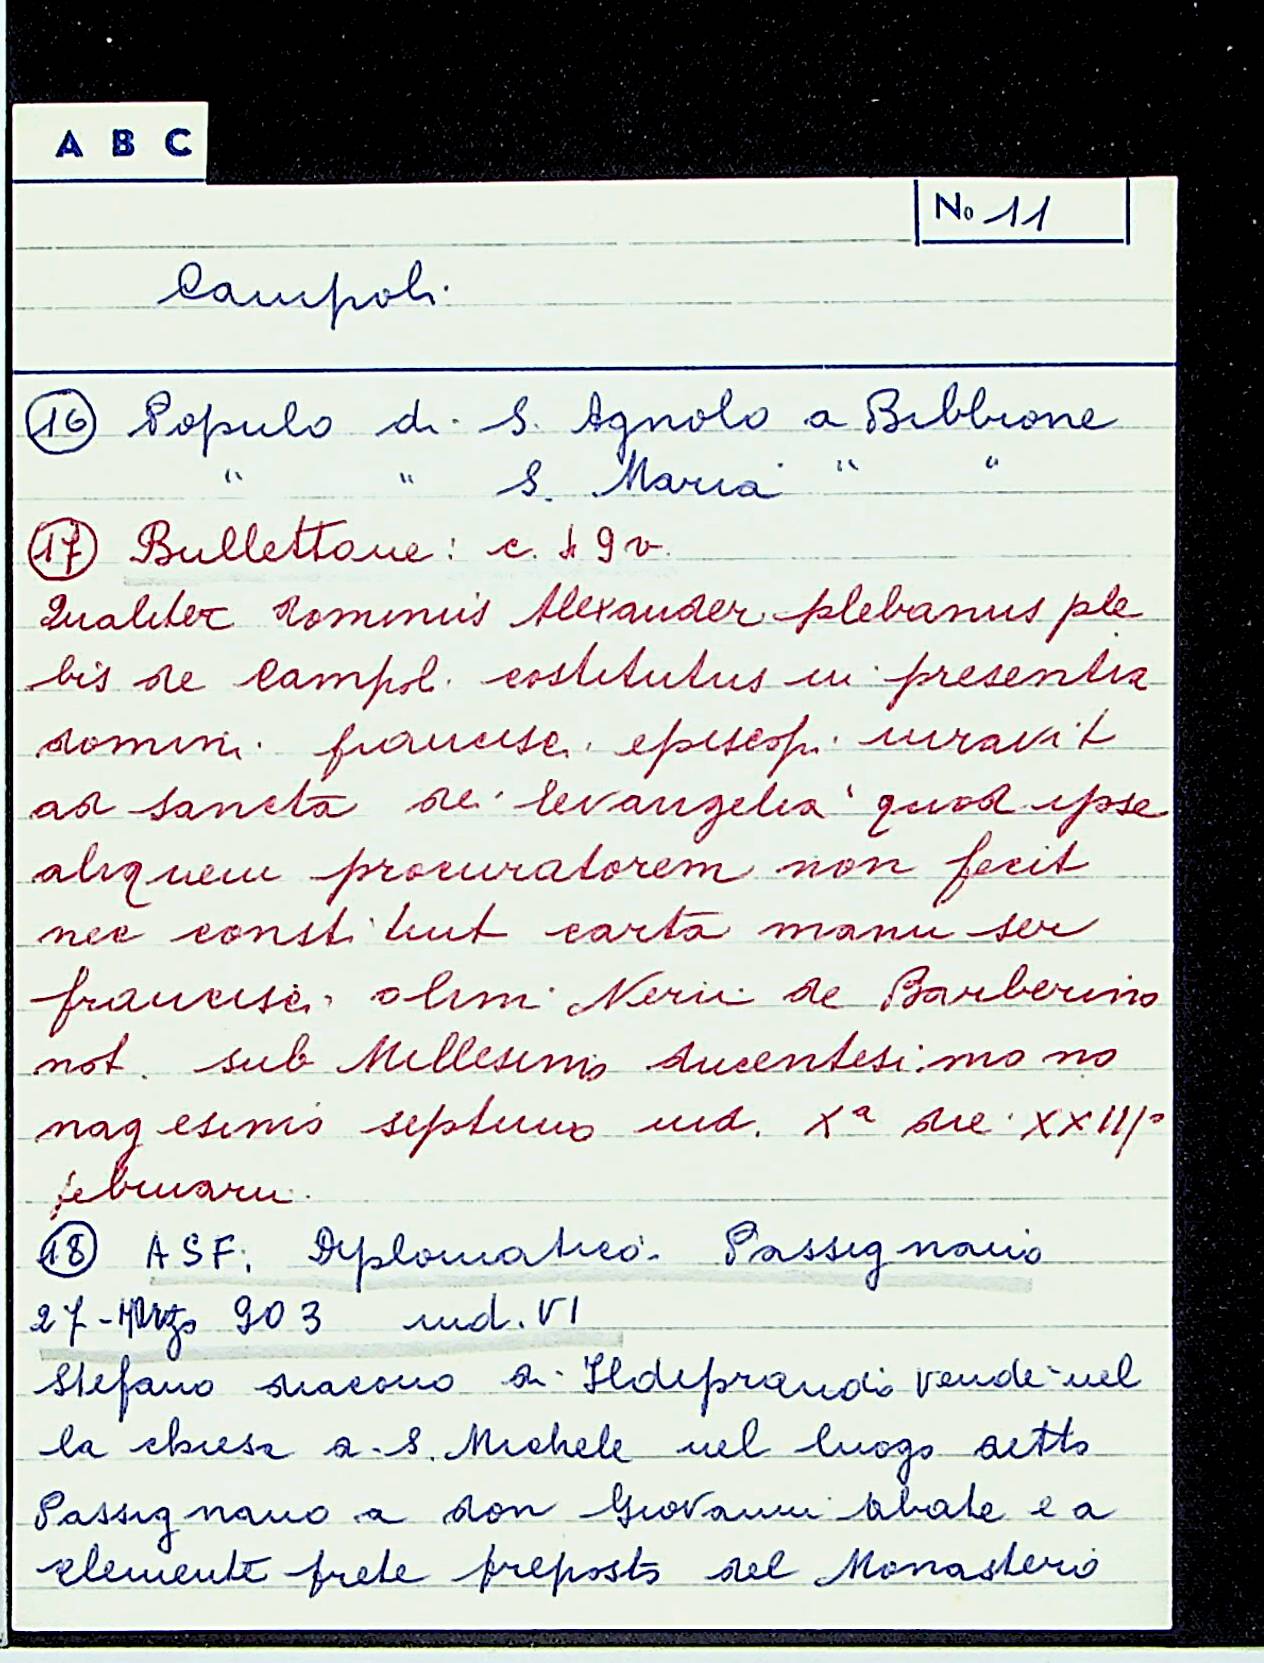 A B C
No 11
Campoli
16 Populo di S. Agnolo a Bibbione
" " S. Maria " "
17 Bullettone: c. 9 v.
Qualiter dominus Alexander plebanus ple
bis de Campoli costitutus in presentia
domini francisci episcopi iuravit
ad sancta dei evangelia quod ipse
aliquem procuratorem non fecit
nec constituit carta manu ser
francisci olim Nerii de Barberino
not. sub Millesimo ducentesimo no
nagesimo septimo ind. Xa die XXIII°
februarii.
18 ASF: Diplomatico Passignano
27-Marzo 903 ind. VI
Stefano diacono di Ildeprando vende nel
la chiesa a S. Michele nel luogo detto
Passignano a don Giovanni abate e a
clemente prete preposto del Monasterio